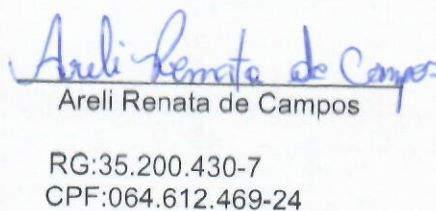 Areli Renata de Campos
Areli Renata de Campos
RG:35.200.430-7
CPF:064.612.469-24